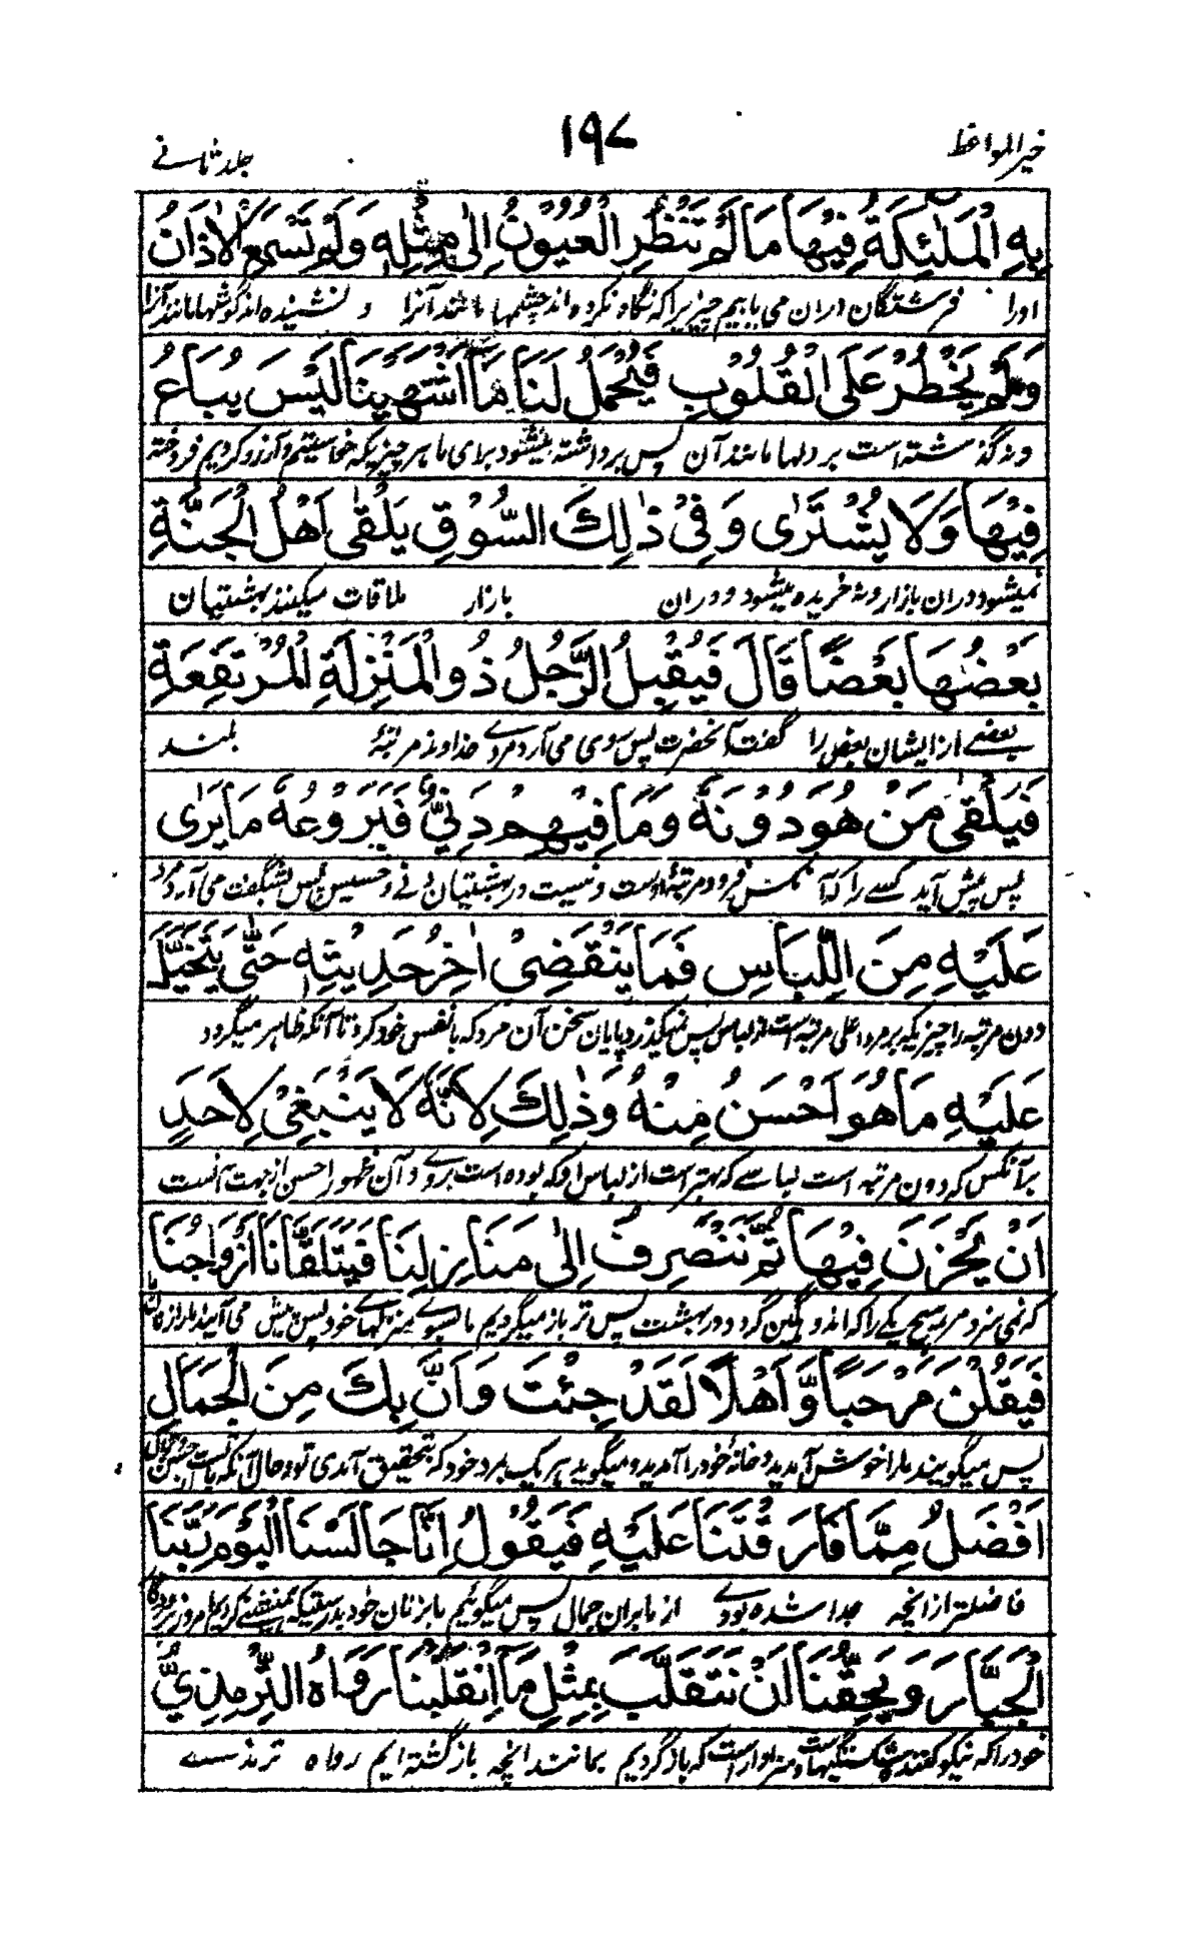 خير المواعظ
۱۹۷
جلد ثانے
بِهِ الْمَلٰئِكَةُ فِيْهَا مَا لَمْ تَنْظُرِ الْعُيُوْنُ اِلٰى مِثْلِهٖ وَلَمْ تَسْمَعِ الْاٰذَانُ
اورا فرشتگان دران می یابیم چیزیرا که نگاه نکرده اند چشمها مانند آنرا و نشنیده اند گوشها مانند آنرا
وَلَمْ يَخْطُرْ عَلَى الْقُلُوْبِ فَيُحْمَلُ لَنَا مَا اشْتَهَيْنَا لَيْسَ يُبَاعُ
ونه گذشته است بر دلها مانند آن پس برداشته میشود برای ما هر چیزیکه خواستیم و آرزو کردیم فروخته
فِيْهَا وَلَا يُشْتَرٰى وَفِىْ ذٰلِكَ السُّوْقِ يَلْقٰى اَهْلُ الْجَنَّةِ
نمیشود دران بازار ونه خریده میشود ودران بازار ملاقات میکنند بهشتیان
بَعْضُهَا بَعْضًا قَالَ فَيُقْبِلُ الرَّجُلُ ذُو الْمَنْزِلَةِ الْمُرْتَفِعَةِ
بعضے از ایشان بعض را گفت آنحضرت پس سوی می آرد مردے خداوند مرتبۂ بلند
فَيَلْقٰى مَنْ هُوَ دُوْنَهٗ وَمَا فِيْهِمْ دَنِىٌّ فَيَرُوْعُهٗ مَا يَرٰى
پس پیش آید کسے را که آنکس فرود مرتبۂ اوست ونیست در بهشتیان دنے وخسیس پس بشگفت می آرد مرد
عَلَيْهِ مِنَ اللِّبَاسِ فَمَا يَنْقَضِىْ اٰخِرُ حَدِيْثِهٖ حَتّٰى يَتَخَيَّلَ
دون مرتبه را چیزیکه بر مرد اعلی مرتبه است از لباس پس نمیگذرد پایان سخن آن مرد که با نفس خود کرد تا آنکه ظاهر میگردد
عَلَيْهِ مَا هُوَ اَحْسَنُ مِنْهُ وَذٰلِكَ لِاَنَّهٗ لَا يَنْبَغِىْ لِاَحَدٍ
بر آنکس که دون مرتبه است لباسے که بهتر است از لباس او که بوده است بروے وآن ظهور احسن از جهت آنست
اَنْ يَحْزَنَ فِيْهَا ثُمَّ نَنْصَرِفُ اِلٰى مَنَازِلِنَا فَيَتَلَقَّانَا اَزْوَاجُنَا
که نمی سزد مر هیچ یکے را که اندوهگین گردد در بهشت پس تر باز میگردیم ما بسوے منزلهاے خود پس پیش می آیند ما را
فَيَقُلْنَ مَرْحَبًا وَّاَهْلًا لَقَدْ جِئْتَ وَاَنَّ بِكَ مِنَ الْجَمَالِ
پس میگویند ما را خوش آمدید وخانۂ خود را آمدید و میگوید هر یک بمرد خود که بتحقیق آمدی تو وحال آنکه
اَفْضَلُ مِمَّا فَارَقْتَنَا عَلَيْهِ فَيَقُوْلُ اِنَّا جَالَسْنَا الْيَوْمَ رَبَّنَا
فاضلتر از انچه جدا شده بودے از ما بران جمال پس میگوئیم ما بزنان خود بدرستیکه همنشینے کردیم امروز
الْجَبَّارَ وَيَحِقُّنَا اَنْ نَنْقَلِبَ بِمِثْلِ مَا انْقَلَبْنَا رَوَاهُ التِّرْمِذِىُّ
خود را که نیکو کننده شکستگیهاست وسزاوار است که باز گردیم بمانند انچه باز گشته ایم رواه ترمذے